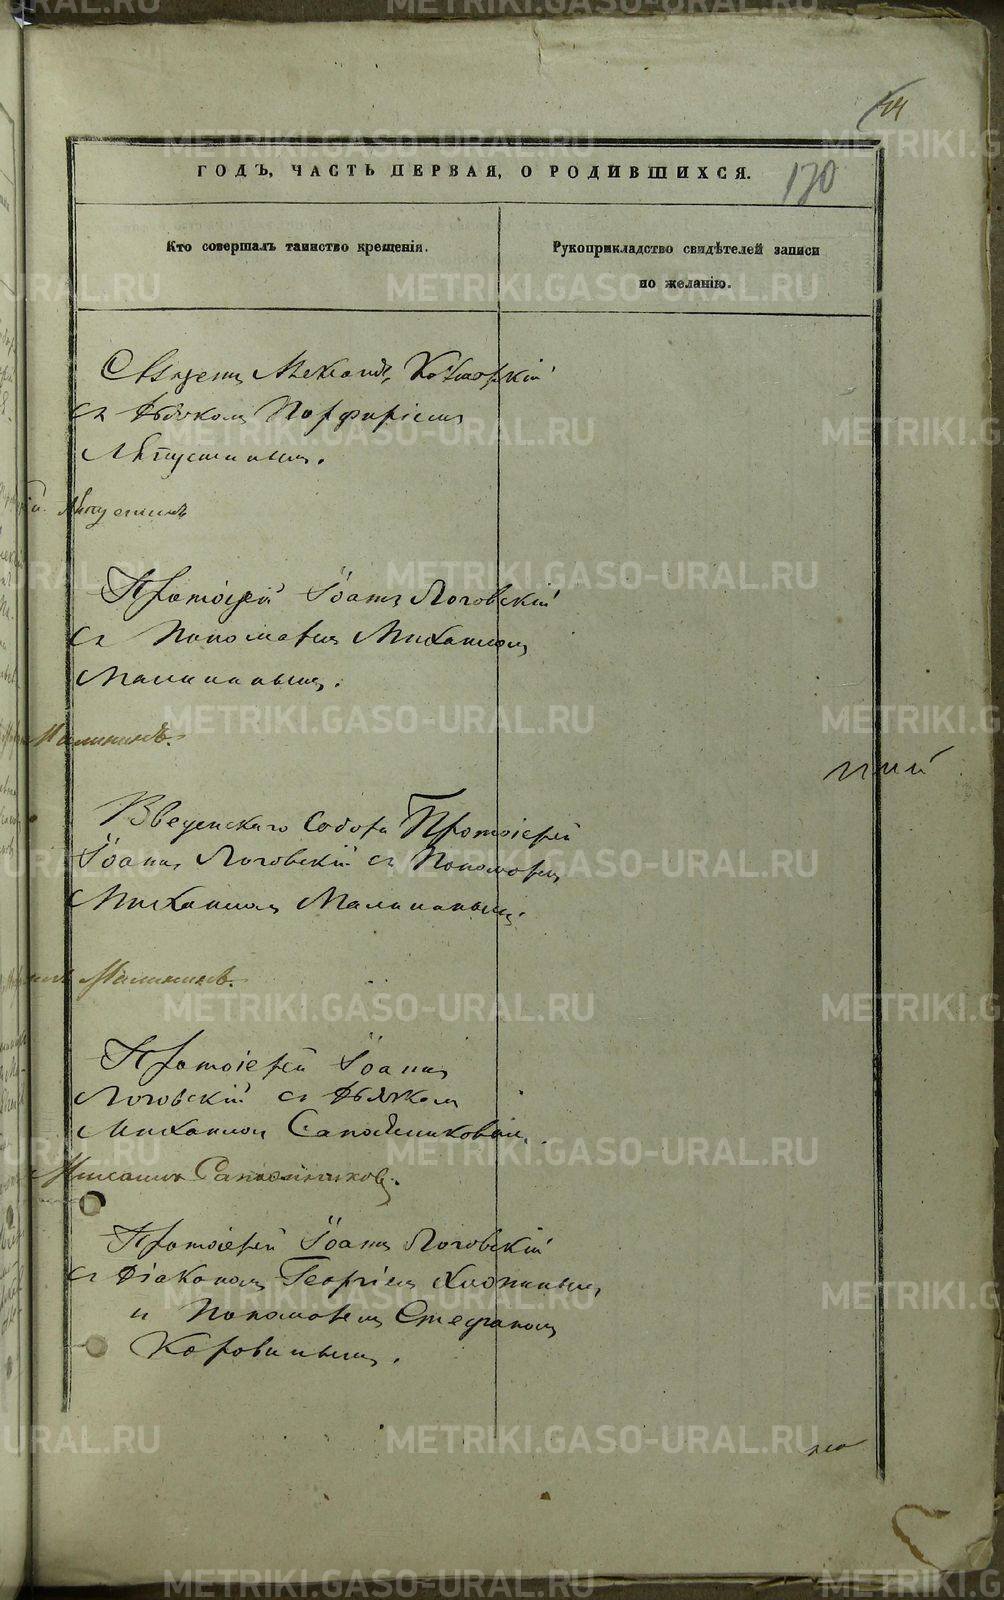 44
ГОДЪ, ЧАСТЬ ПЕРВАЯ, О РОДИВШИХСЯ.
170
Кто совершалъ таинство крещенія.
Рукоприкладство свидѣтелей записи
по желанію.
Священ. Александръ
съ Дьячкомъ Порфиріемъ
Ляпустинымъ.
Ляпустинъ
Протоіерей Іоаннъ Логовскій
съ Пономаремъ Михаиломъ
Малининымъ.
Малининъ.
Введенскаго Собора Протоіерей
Іоаннъ Логовскій съ Пономаремъ
Михаиломъ Малининымъ.
Малининъ.
Протоіерей Іоаннъ
Логовскій съ Дьячкомъ
Михаиломъ Сапожниковымъ.
Михаилъ Сапожниковъ.
Протоіерей Іоаннъ Логовскій
съ Діакономъ Георгіемъ
и Пономаремъ Стефаномъ
Коровинымъ.
METRIKI.GASO-URAL.RU